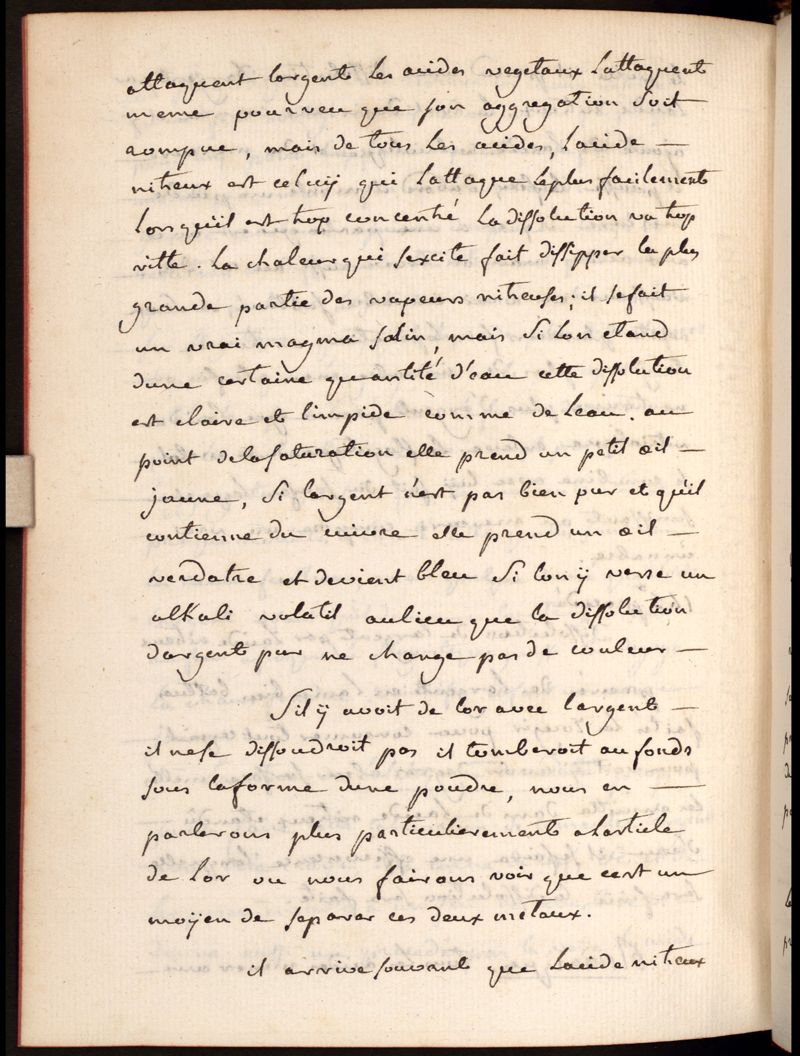 attaquent largent les acides vegetaux lattaquent
meme pourveu que son aggregation soit
rompue, mais de tous les acides, lacide —
nitreux est celuÿ qui lattaque le plus facilement
lorsquil est trop concentré la dissolution va trop
ville. la chaleur qui sexcite fait dissipper la plus
grande partie des vapeurs nitreuses; il se fait
un vrai magma salin, mais si lon etand
dune certaine quantité d'eau cette dissolution
est claire et limpide comme de leau. au
point de la saturation elle prend un petit œil —
jaune, si largent n'est pas bien pur et qu'il
contienne du cuivre elle prend un œil —
verdatre et devient bleu si lon ÿ verse un
alkali volatil aulieu que la dissolution
dargent pur ne change pas de couleur —
Sil ÿ avoit de lor avec largent —
il ne se dissoudroit pas il tomberoit au fonds
sous la forme dune poudre, nous en —
parlerons plus particulierement a larticle
de lor ou nous fairons voir que cest un
moÿen de separer ces deux metaux.
il arrive souvant que lacide nitreux